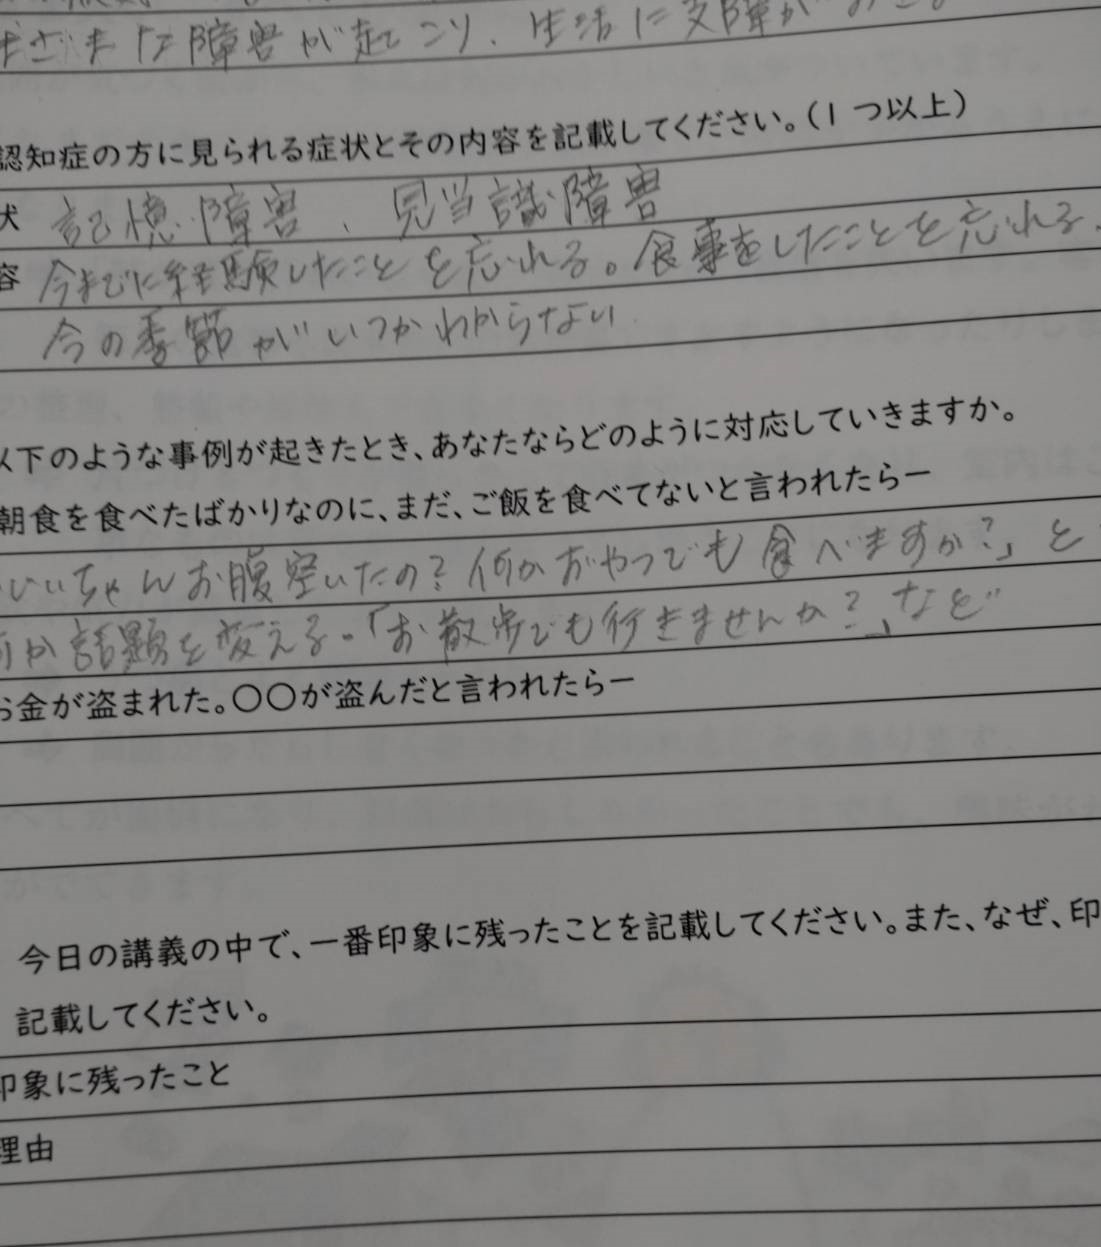 障害が起こり、生活に支障が
認知症の方に見られる症状とその内容を記載してください。(1つ以上)
状 記憶障害、見当識障害
容 今までに経験したことを忘れる。食事をしたことを忘れる、
今の季節がいつかわからない
以下のような事例が起きたとき、あなたならどのように対応していきますか。
朝食を食べたばかりなのに、まだ、ご飯を食べてないと言われたらー
ちゃんお腹空いたの?何かおやつでも食べますか?」と
何か話題を変える。「お散歩でも行きませんか?」など
お金が盗まれた。〇〇が盗んだと言われたらー
今日の講義の中で、一番印象に残ったことを記載してください。また、なぜ、印
記載してください。
印象に残ったこと
理由